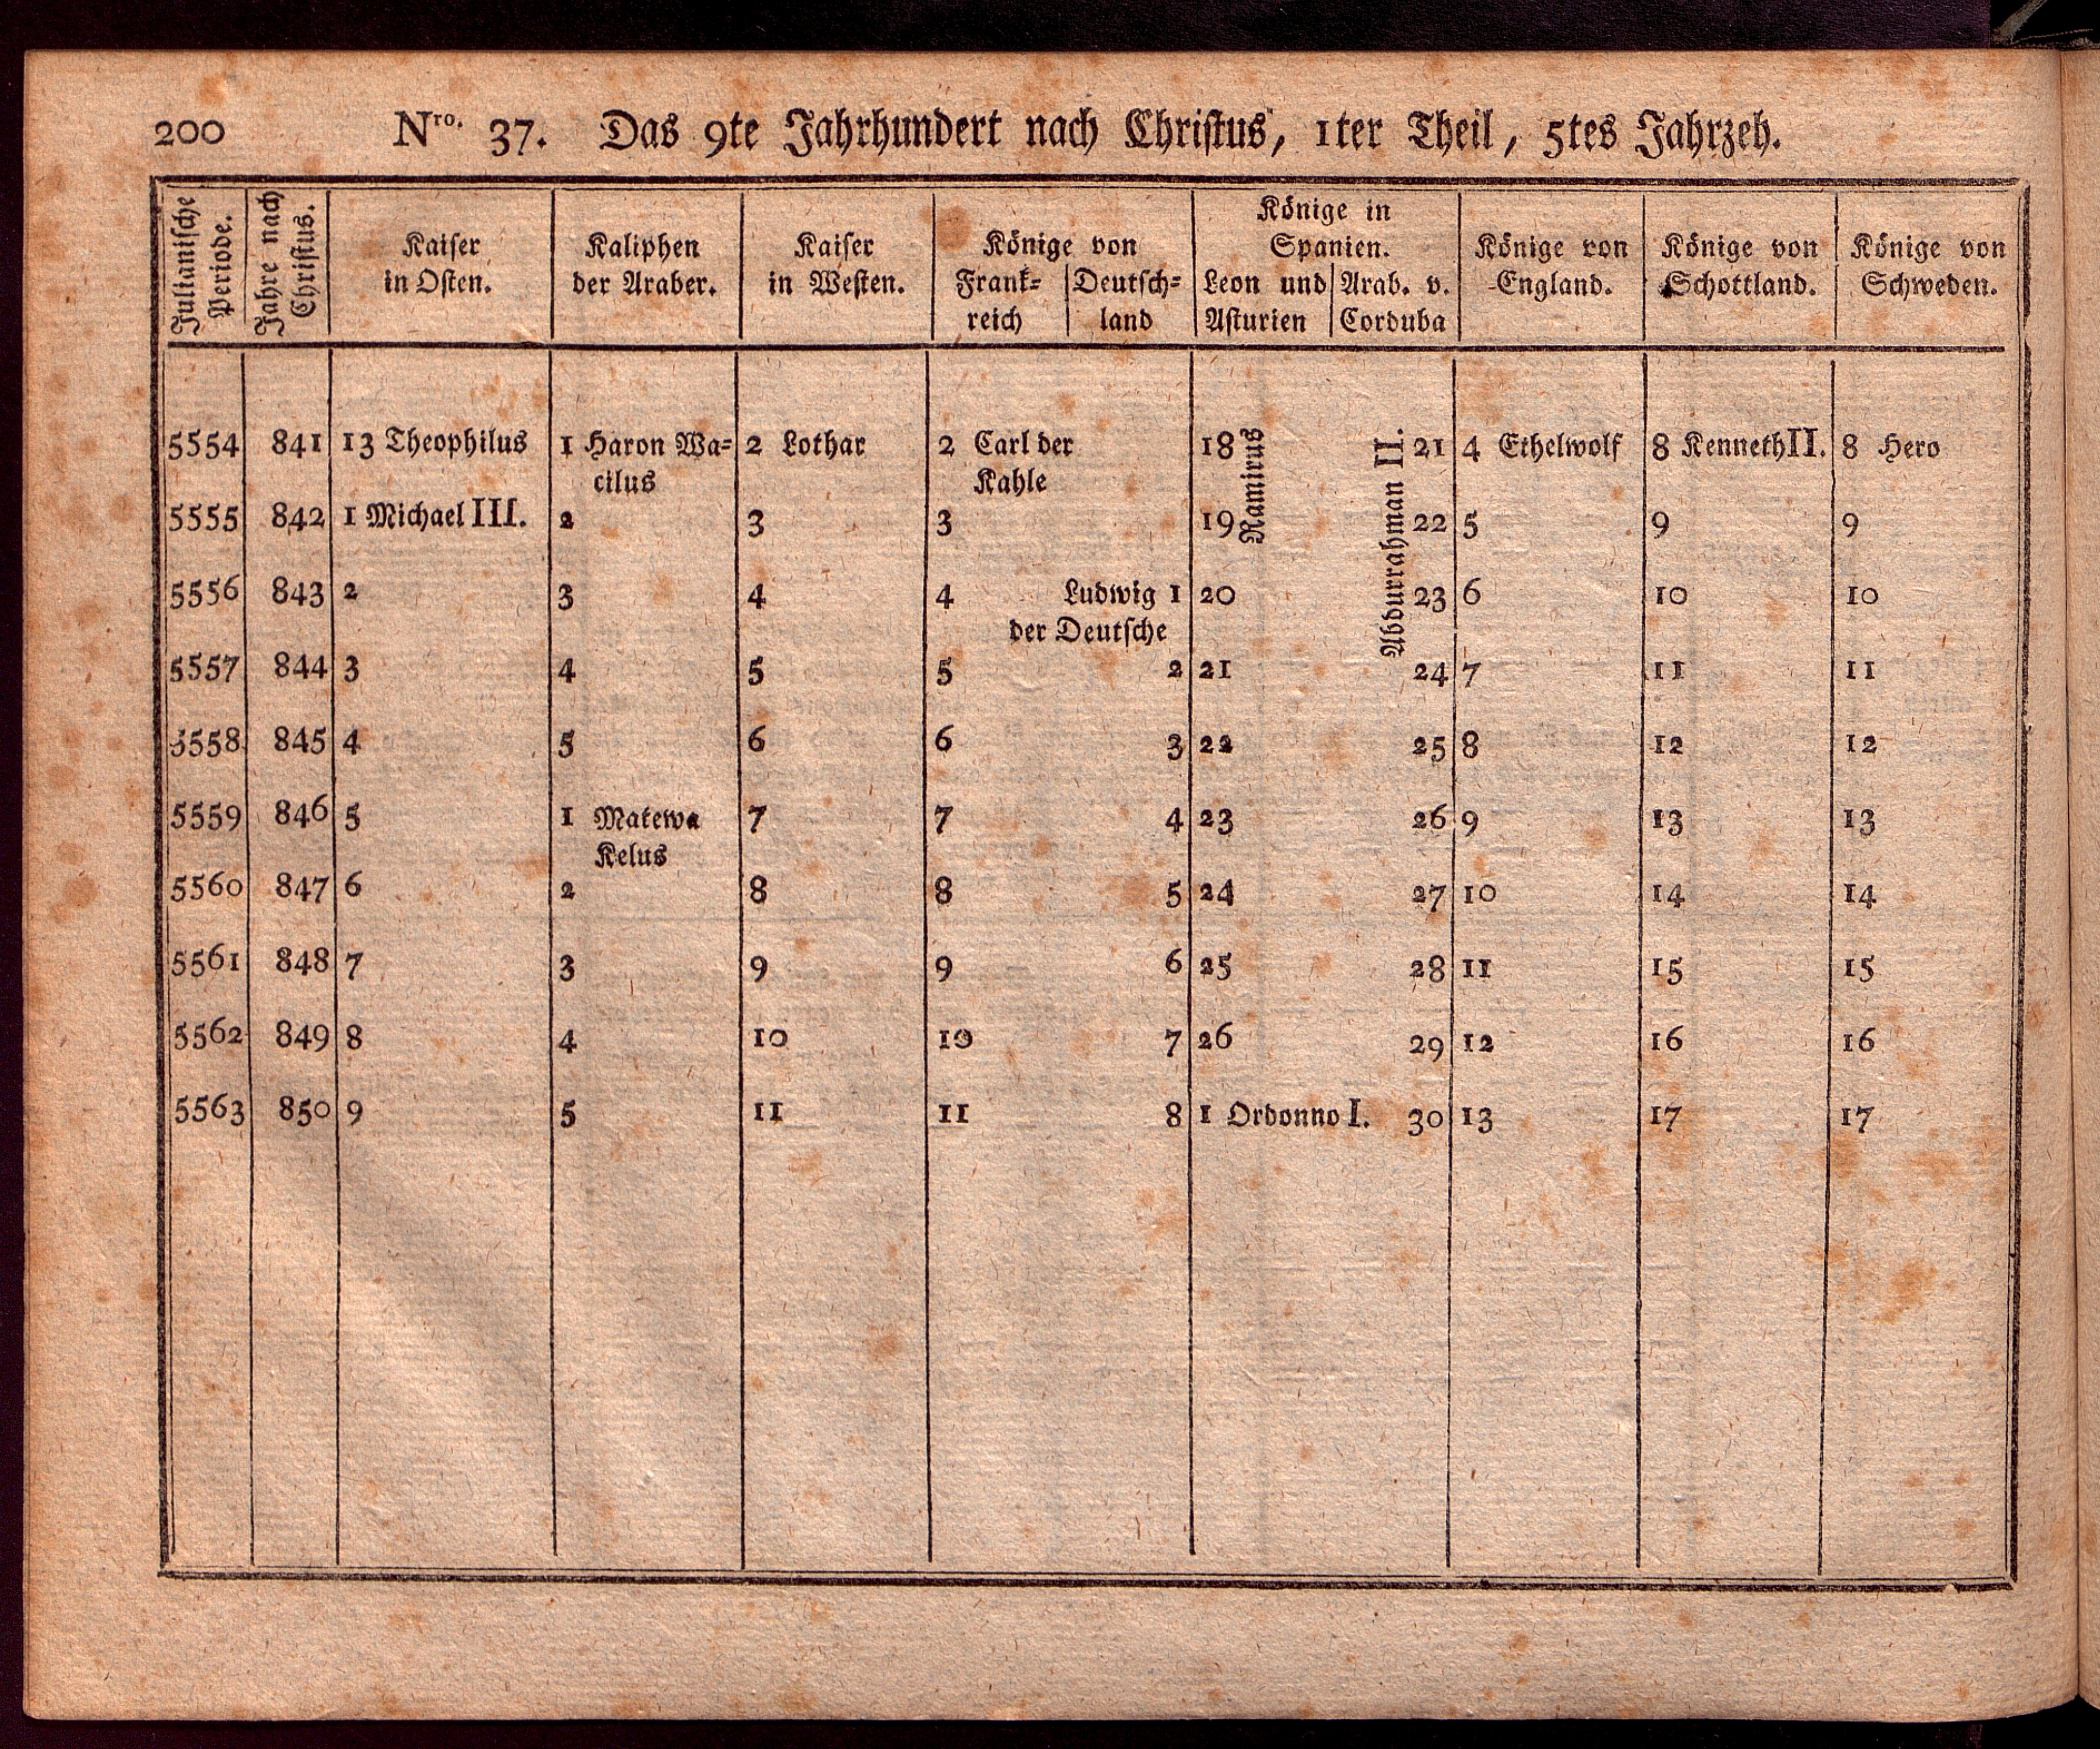 200 Nro. 37. Das 9te Jahrhundert nach Christus, 1ter Theil, 5tes Jahrzeh.
Julianische Periode.
Jahre nach Christus.
Kaiser
in Osten.
Kaliphen
der Araber.
Kaiser
in Westen.
Könige von
Frank= Deutsch=
reich land
Könige in
Spanien.
Leon und Arab. v.
Asturien Corduba
Könige von
England.
Könige von
Schottland.
Könige von
Schweden.
5554 841 13 Theophilus 1 Haron Wa= 2 Lothar 2 Carl der 18 21 4 Ethelwolf 8 Kenneth II. 8 Hero
cilus Kahle
Ramirus
Abdurrahman II.
5555 842 1 Michael III. 2 3 3 19 22 5 9 9
5556 843 2 3 4 4 Ludwig 1 20 23 6 10 10
der Deutsche
5557 844 3 4 5 5 2 21 24 7 11 11
5558 845 4 5 6 6 3 22 25 8 12 12
5559 846 5 1 Matewa 7 7 4 23 26 9 13 13
Kelus
5560 847 6 2 8 8 5 24 27 10 14 14
5561 848 7 3 9 9 6 25 28 11 15 15
5562 849 8 4 10 10 7 26 29 12 16 16
5563 850 9 5 11 11 8 1 Ordonno I. 30 13 17 17